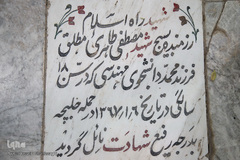 شهید راه اسلام
رزمنده بسیجی شهید مصطفی طاهری مطلق
فرزند محمد دانشجوی مهندسی که در سن ۱۸
سالگی در تاریخ ۱۳۶۷،۱،۶ در حمله حلبچه
بدرجه رفیع شهادت نائل گردید